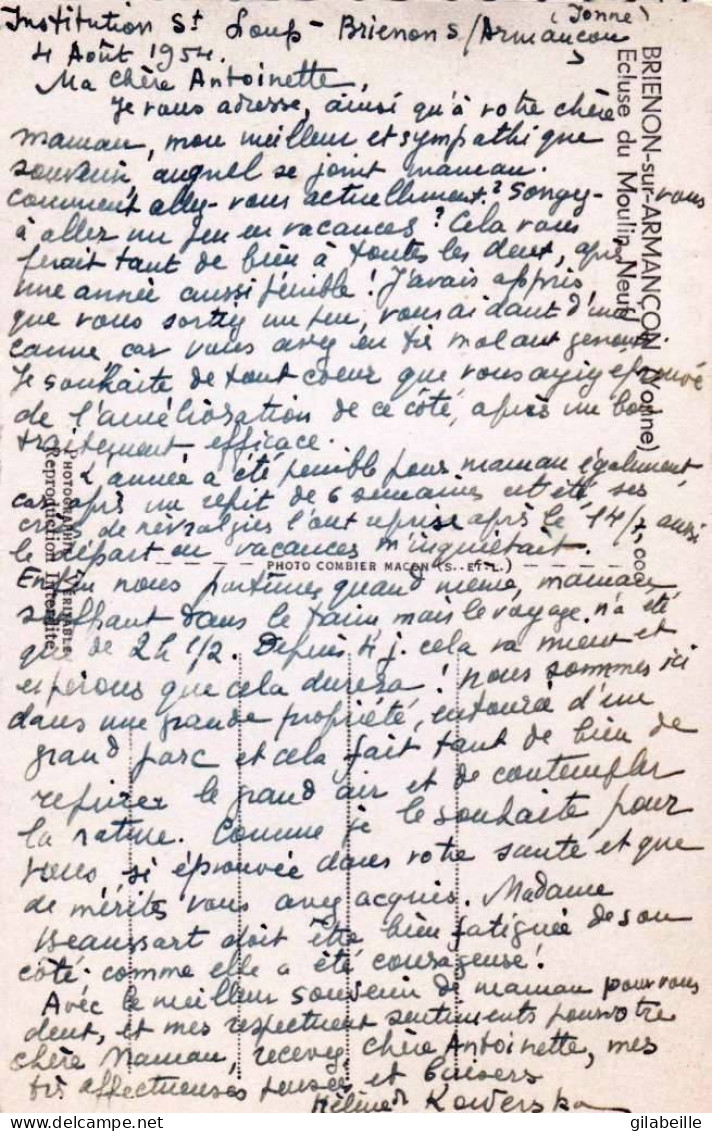 (Yonne)
Institution St Loup - Brienon s/Armançon
4 Août 1954.
Ma chère Antoinette,
Je vous adresse, ainsi qu'à votre chère
maman, mon meilleur et sympathique
souvenir, auquel se joint maman.
Comment allez-vous actuellement? Songez-vous
à aller un peu en vacances? Cela vous
ferait tant de bien à toutes les deux, après
une année aussi pénible! J'avais appris
que vous sortiez un peu, vous aidant d'une
canne, car vous avez eu très mal aut genoux.
Je souhaite de tout coeur que vous ayiez éprouvé
de l'amélioration de ce côté, après un bon
traitement efficace.
L'année a été pénible pour maman également,
car, après un répit de 6 semaines cet été, ses
crises de névralgies l'ont reprise après le 14/7, aussi
le départ en vacances m'inquiétait.
Enfin nous partîmes quand même, maman
souffrant dans le train mais le voyage n'a été
que de 2h 1/2. Depuis 4 j. cela va mieux et
espérons que cela durera! Nous sommes ici
dans une grande propriété, entourée d'un
grand parc et cela fait tant de bien de
respirer le grand air et de contempler
la nature. Comme je le souhaite pour
vous si éprouvée dans votre santé et que
de mérites vous avez acquis. Madame
Beaussart doit être bien fatiguée de son
côté. comme elle a été courageuse!
Avec le meilleur souvenir de maman pour vous
deux, et mes respectueux sentiments pour votre
chère Maman, recevez, chère Antoinette, mes
très affectueuses pensées et baisers
Hélène Kowerska
BRIENON-sur-ARMANÇON (Yonne)
Ecluse du Moulin Neuf
PHOTOGRAPHIE VÉRITABLE
Reproduction Interdite
PHOTO COMBIER MACON (S.-ET-L.)
gilabeille